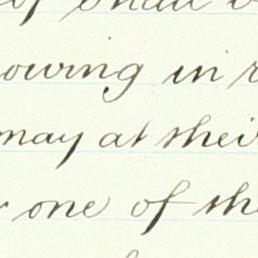 of shall
owing in
may at their
one of the